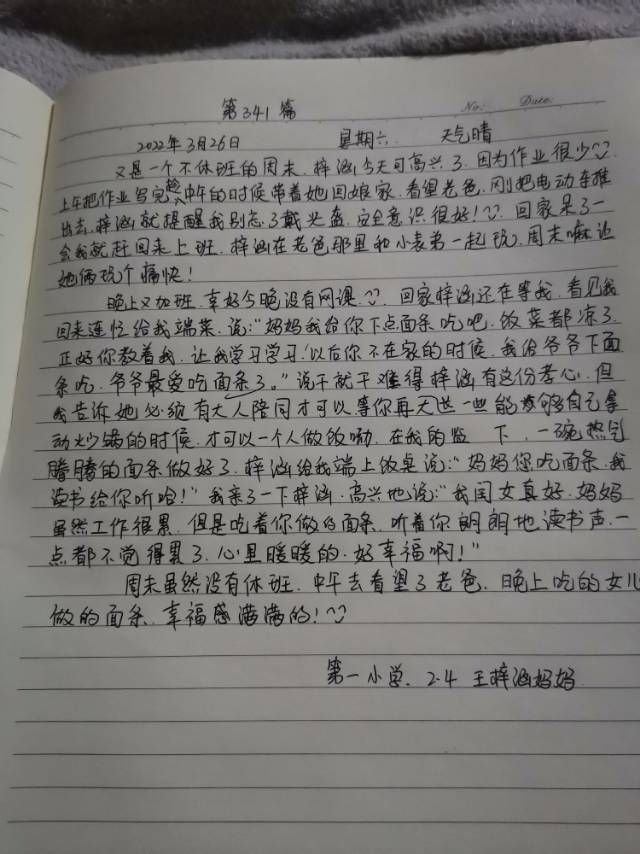 第341篇
No: Date:
2022年3月26日 星期六 天气晴
又是一个不休班的周末,梓涵今天可高兴了,因为作业很少
上午把作业写完,趁中午的时候带着她回娘家,看望老爸,刚把电动车推
出去,梓涵就提醒我别忘了戴头盔,安全意识很好!回家呆了一
会我就赶回来上班,梓涵在老爸那里和小表弟一起玩,周末嘛让
她俩玩个痛快!
晚上又加班,幸好今晚没有网课,回家梓涵还在等我,看见我
回来连忙给我端菜,说:“妈妈我给你下点面条吃吧,饭菜都凉了,
正好你教着我,让我学习学习!以后你不在家的时候,我给爷爷下面
条吃,爷爷最爱吃面条了。”说干就干难得梓涵有这份孝心,但
我告诉她必须有大人陪同才可以等你再大些一些能够自己拿
动炒锅的时候,才可以一个人做饭呦,在我的监 下,一碗热气
腾腾的面条做好了,梓涵给我端上饭桌说:“妈妈您吃面条,我
读书给你听哈!”我亲了一下梓涵,高兴地说:“我闺女真好,妈妈
虽然工作很累,但是吃着你做的面条,听着你朗朗地读书声,一
点都不觉得累了,心里暖暖的,好幸福啊!”
周末虽然没有休班,中午去看望了老爸,晚上吃的女儿
做的面条,幸福感满满的!
第一小学,2.4 王梓涵妈妈